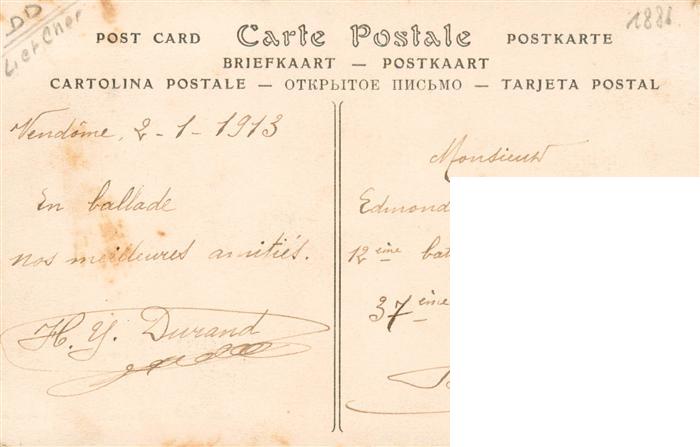 DD
Loir et Cher
1886
POST CARD Carte Postale POSTKARTE
BRIEFKAART — POSTKAART
CARTOLINA POSTALE — ОТКРЫТОЕ ПИСЬМО — TARJETA POSTAL
Vendôme, 2-1-1913
En ballade
nos meilleures amitiés.
H. Y. Durand
Monsieur
Edmond
12 ème
37 ème